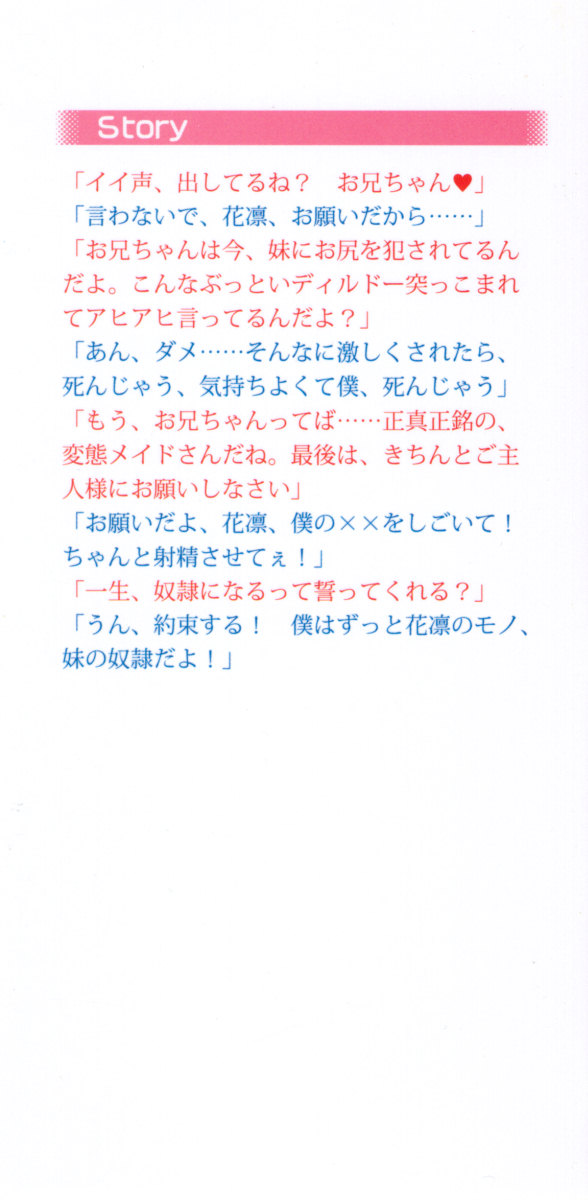 Story
「イイ声、出してるね？　お兄ちゃん♥」
「言わないで、花凛、お願いだから……」
「お兄ちゃんは今、妹にお尻を犯されてるん
だよ。こんなぶっといディルドー突っこまれ
てアヒアヒ言ってるんだよ？」
「あん、ダメ……そんなに激しくされたら、
死んじゃう、気持ちよくて僕、死んじゃう」
「もう、お兄ちゃんってば……正真正銘の、
変態メイドさんだね。最後は、きちんとご主
人様にお願いしなさい」
「お願いだよ、花凛、僕の××をしごいて！
ちゃんと射精させてぇ！」
「一生、奴隷になるって誓ってくれる？」
「うん、約束する！　僕はずっと花凛のモノ、
妹の奴隷だよ！」